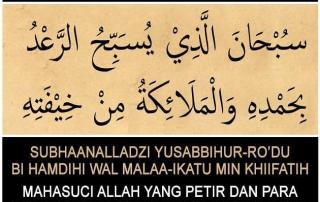 سُبْحَانَ الَّذِيْ يُسَبِّحُ الرَّعْدُ
بِحَمْدِهِ وَالْمَلَائِكَةُ مِنْ خِيْفَتِهِ
SUBHAANALLADZI YUSABBIHUR-RO'DU
BI HAMDIHI WAL MALAA-IKATU MIN KHIIFATIH
MAHASUCI ALLAH YANG PETIR DAN PARA